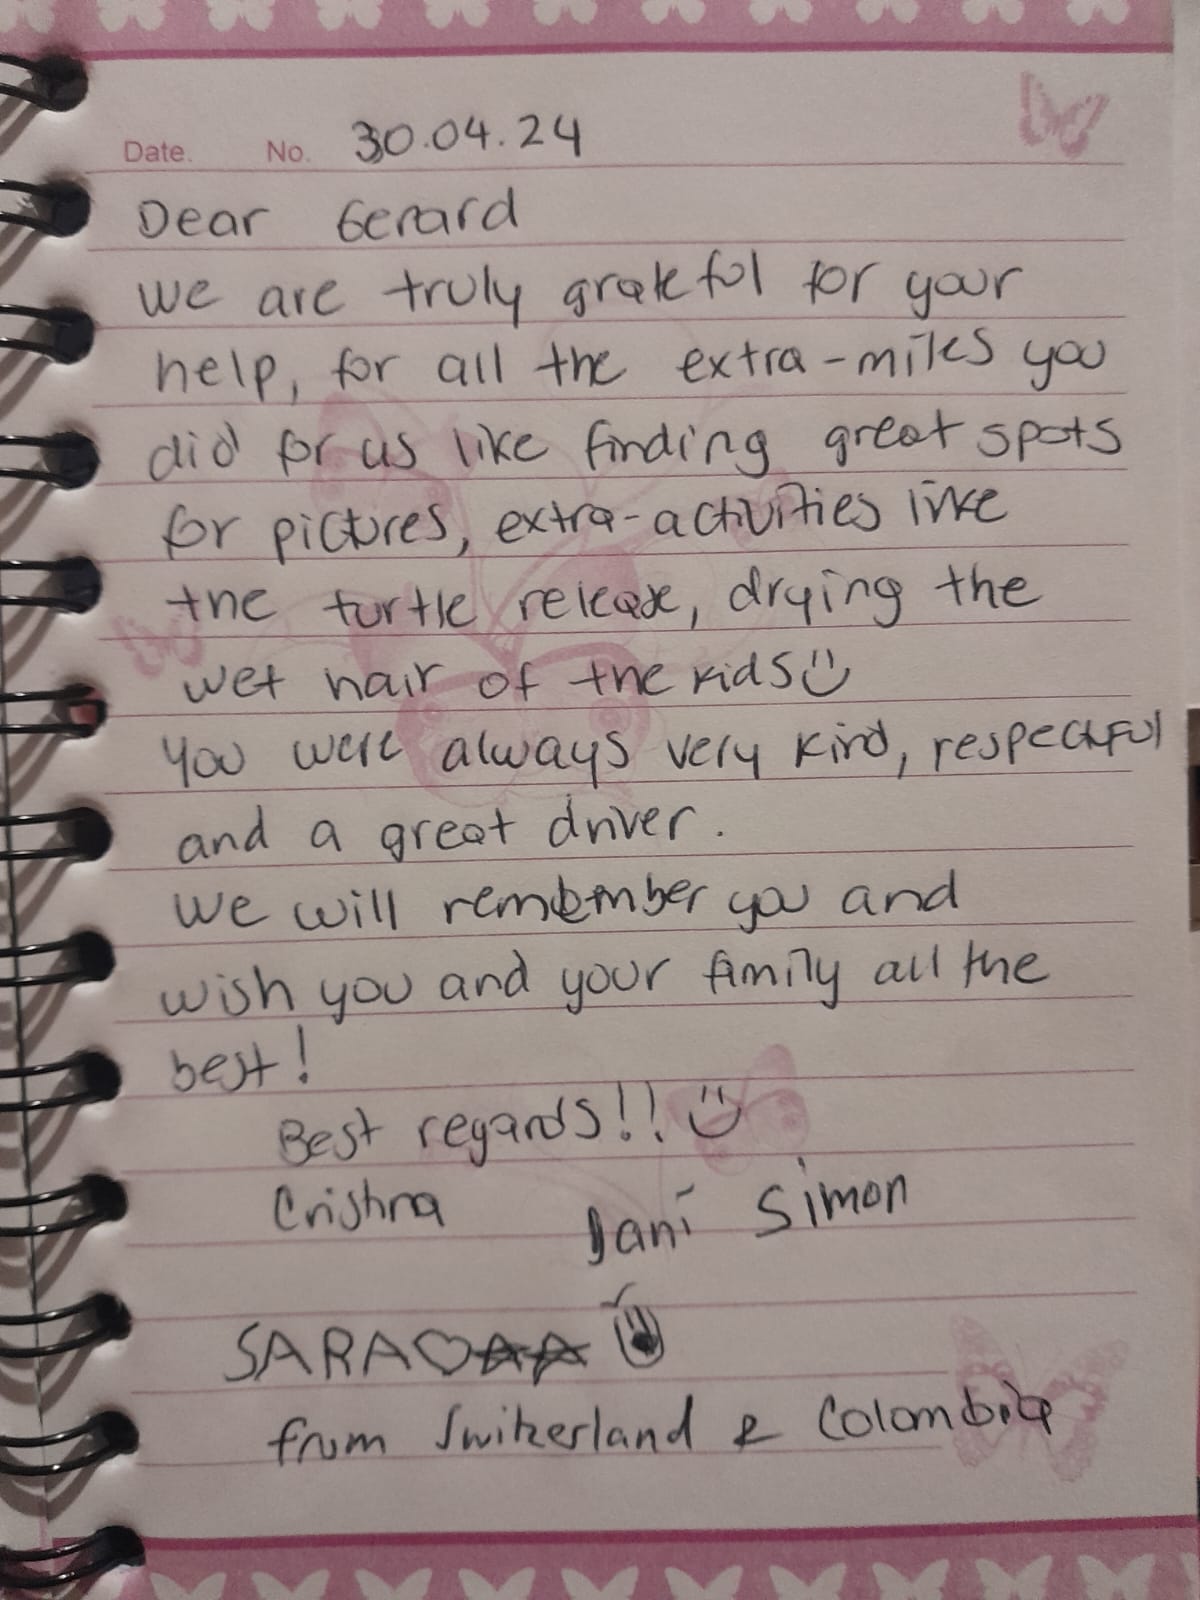 Date. No. 30.04.24
Dear Gerard
we are truly grateful for your
help, for all the extra-miles you
did for us like finding great spots
for pictures, extra-activities like
the turtle release, drying the
wet hair of the kids
you were always very kind, respectful
and a great driver.
We will remember you and
wish you and your family all the
best!
Best regards!!
Cristina Dani Simon
SARA
from Switzerland & Colombia